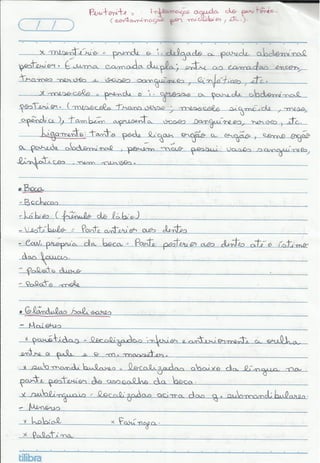 Peritonite : Inflamação aguda do peritônio
(contaminação por micróbios, etc.)
x mesentério - prende o i. delgado a parede abdominal
posterior. É uma camada dupla; entre as camadas encon-
tramos nervos e vasos sanguíneos, linfáticos, etc.
x mesocolo - prende o i. grosso a parede abdominal
posterior. (mesocolo transverso; mesocolo sigmóide, meso
apêndice), também apresenta vasos sanguíneos, nervos, etc.
Ligamento: tanto pode ligar órgão a órgão, como órgão
a parede abdominal, porém não possui vasos sanguíneos,
linfáticos, nem nervos.
• Boca
- Bochechas
- Lábios (frênulo do lábio)
- Vestíbulo : Parte anterior aos dentes
- Cav. própria da boca - Parte posterior aos dentes até o istmo
das fauces.
- Palato duro
- Palato mole
• Glândulas Salivares
- Maiores
x parótidas - localizadas inferior e anteriormente a orelha
entre a pele e o m. masseter.
x submandibulares - localizadas abaixo da língua na
parte posterior do assoalho da boca
x sublinguais - localizadas acima das g. submandibulares
- Menores
x Labial x Faríngea
x Palatina
tilibra